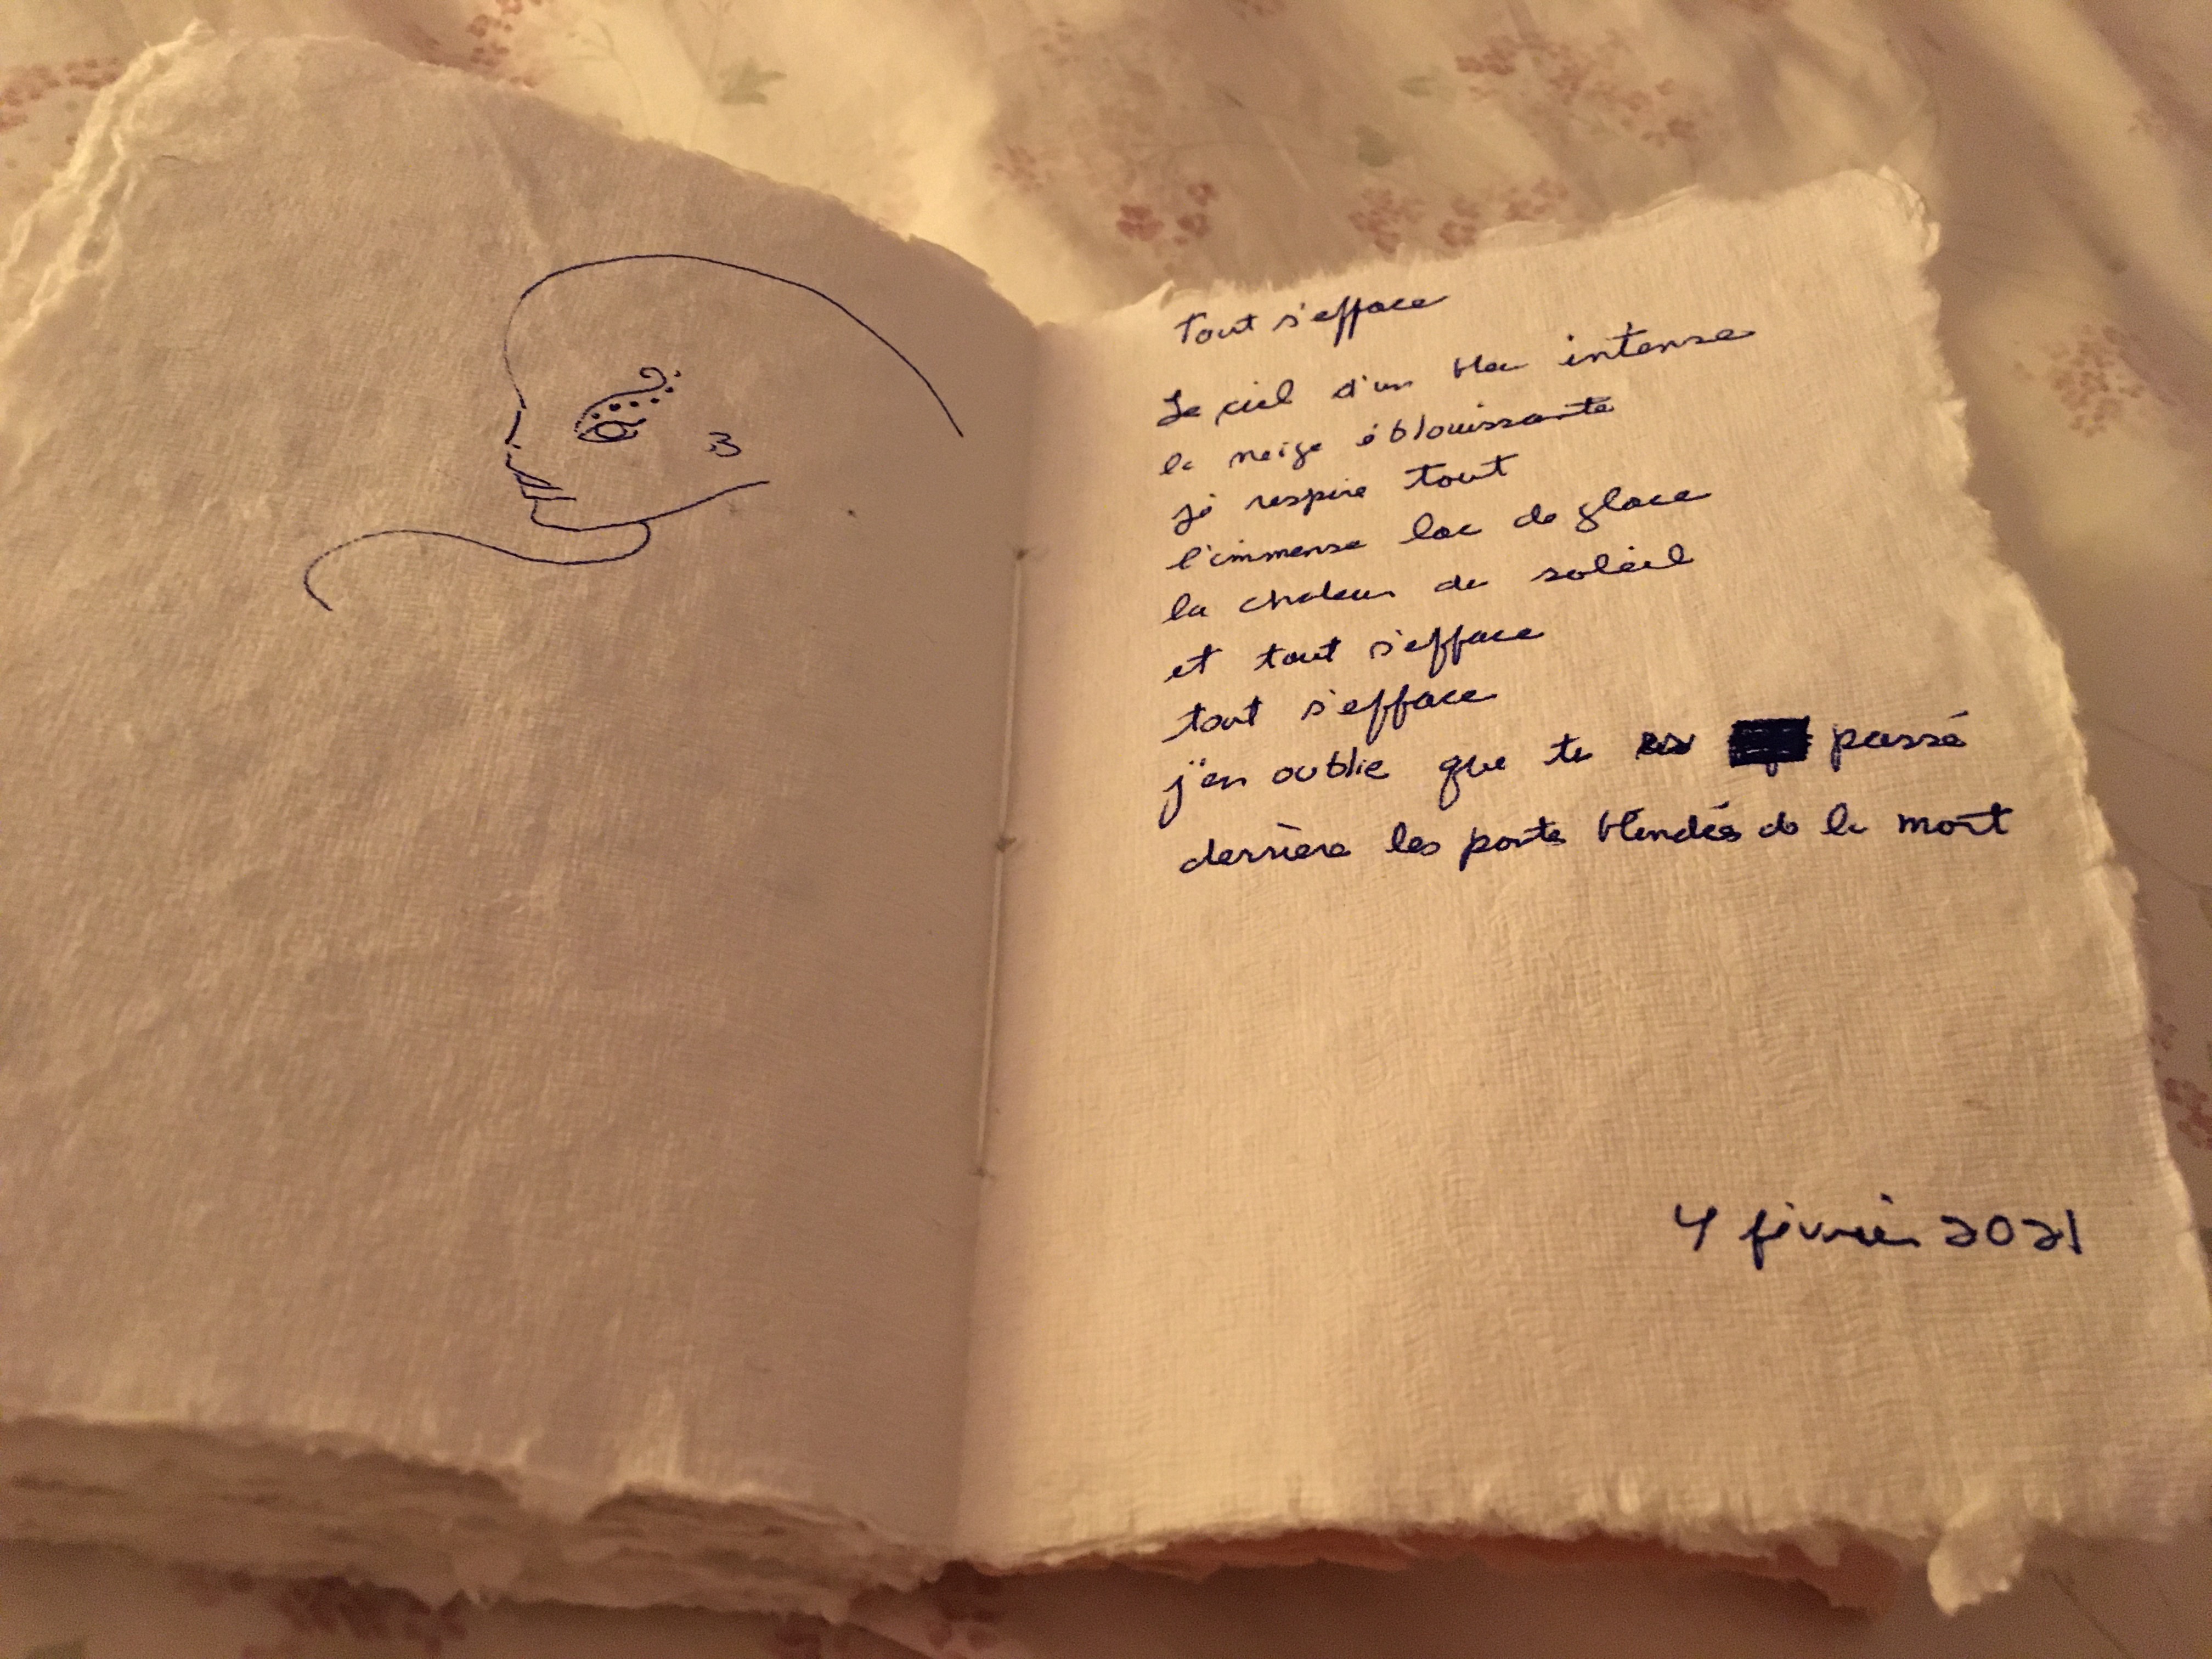 Tout s'efface
Le ciel d'un bleu intense
la neige éblouissante
je respire tout
l'immense lac de glace
la chaleur du soleil
et tout s'efface
tout s'efface
j'en oublie que tu es passé
derrière les porte blindés de la mort
4 février 2021